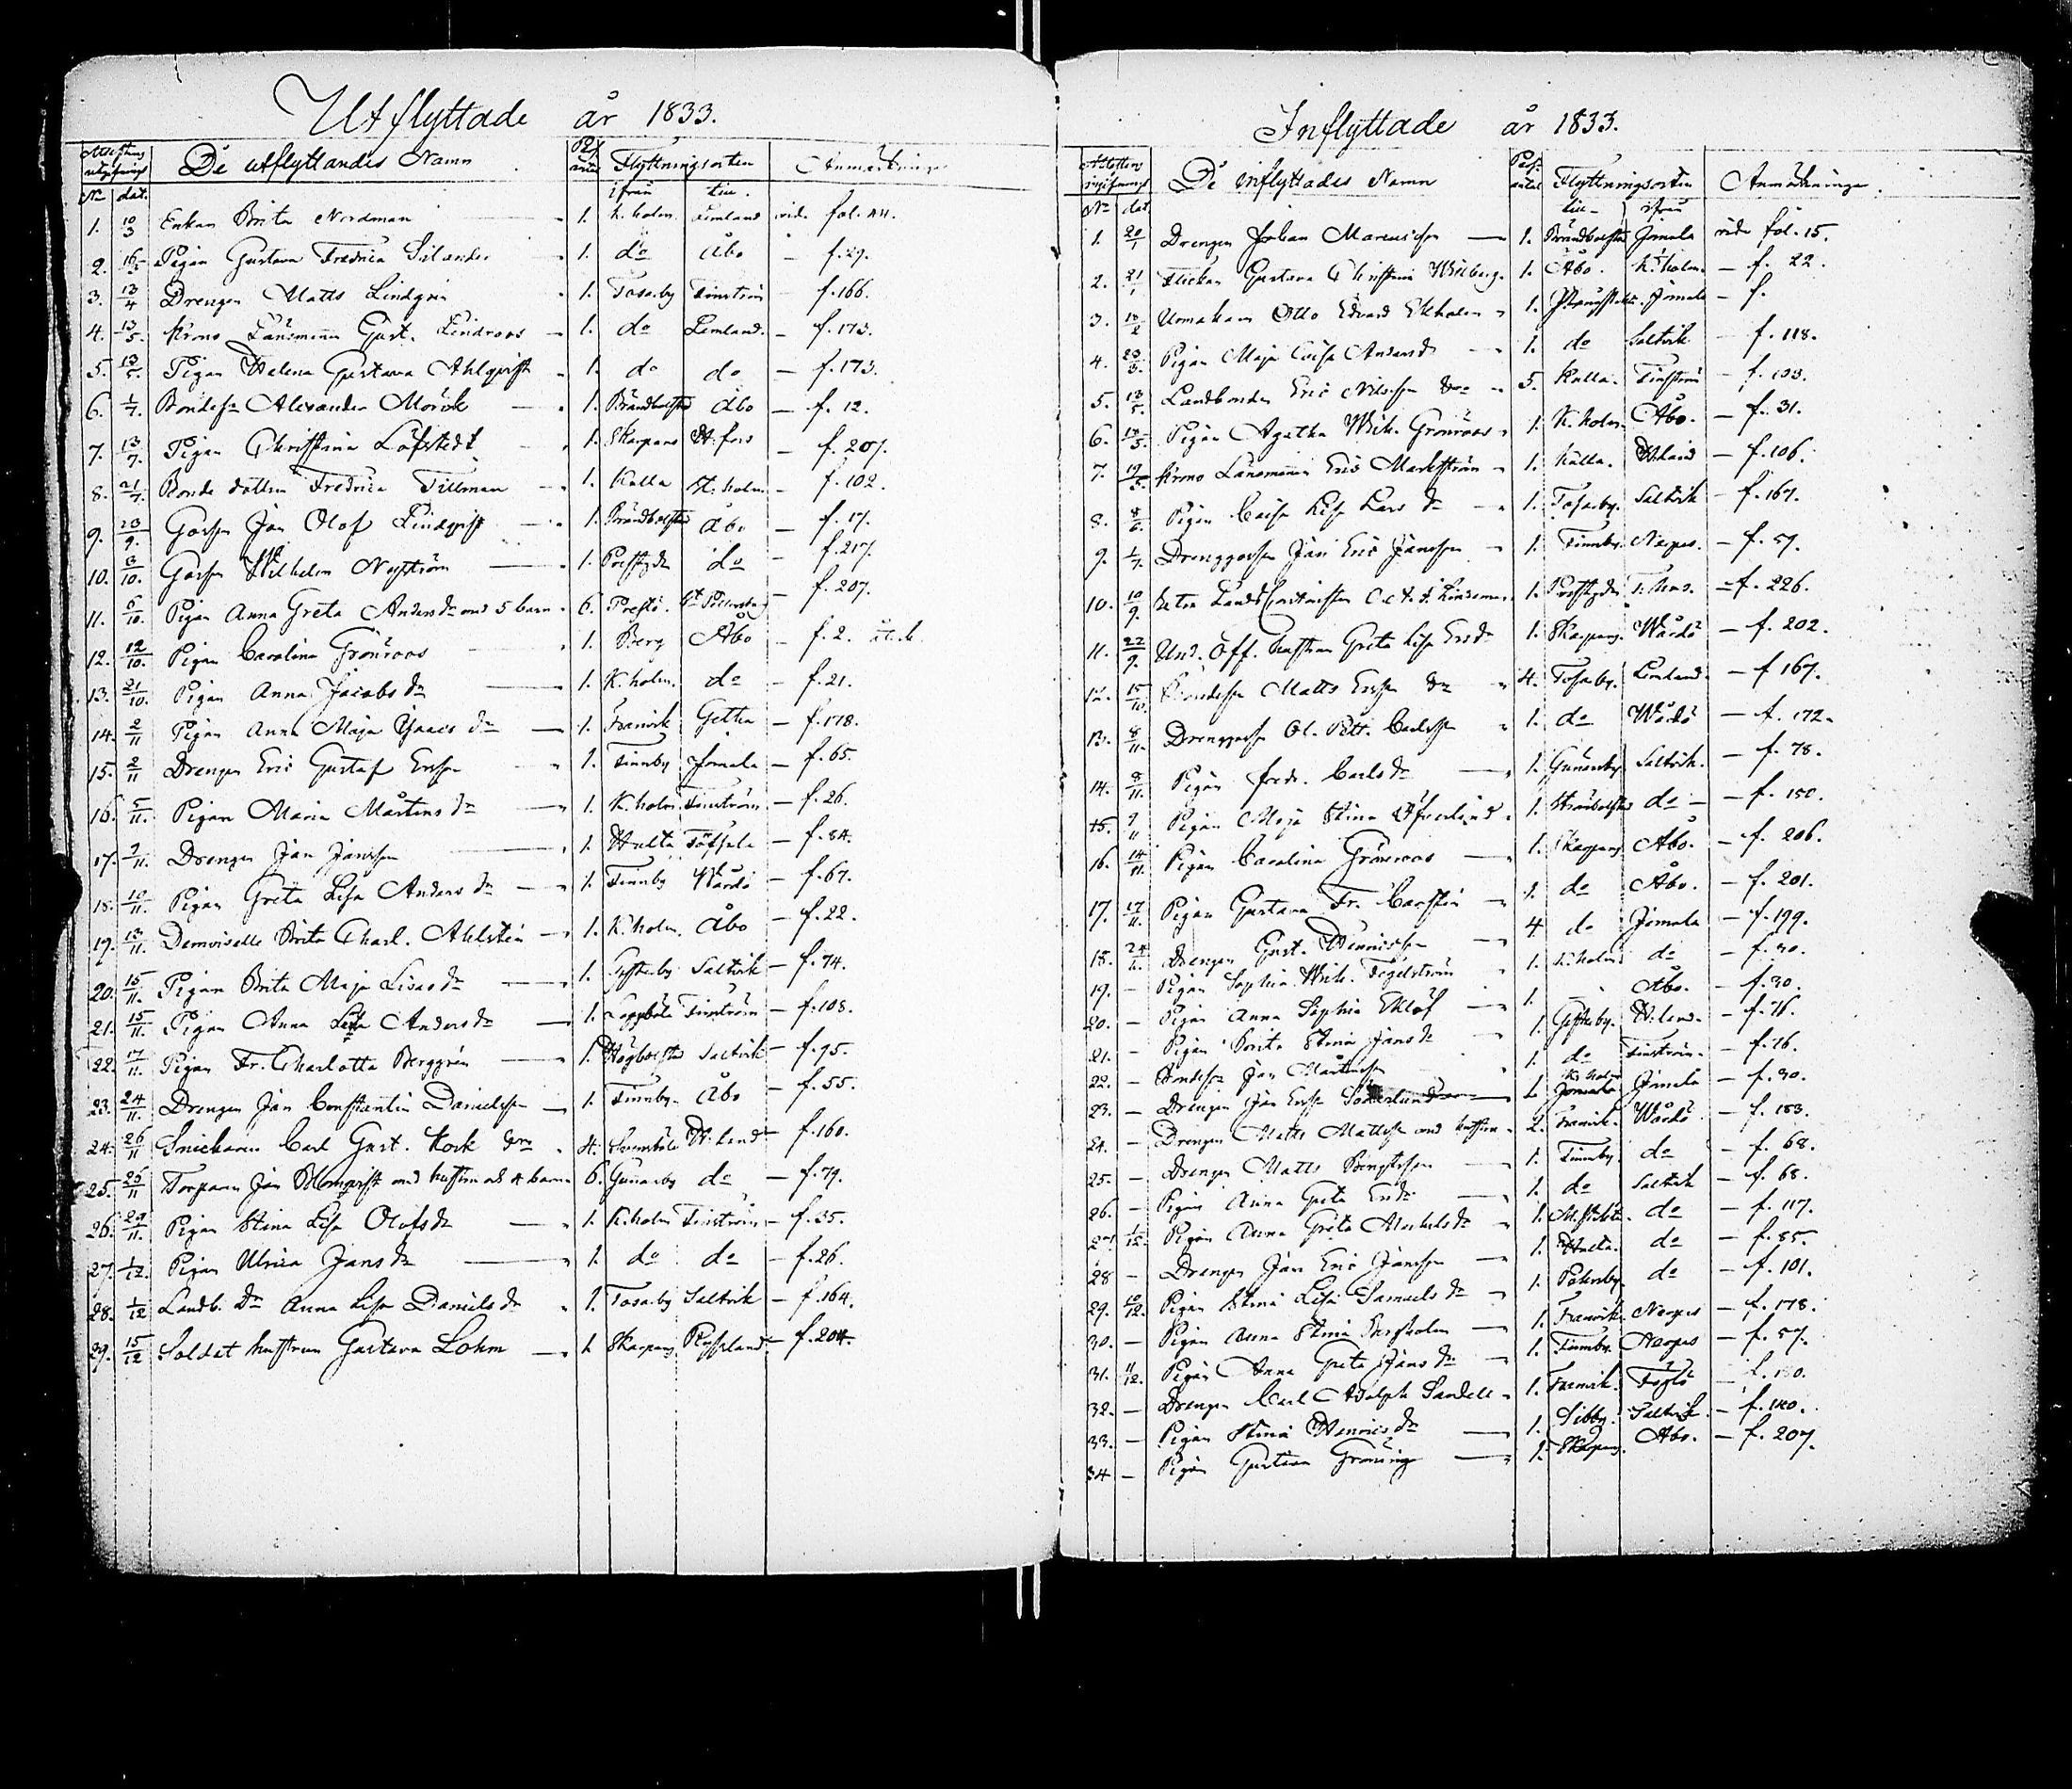 Utflyttade år 1833.
De utflyttandes Namn Flyttningsorten Anmärkningar
No dat. ifrån till
1. 10/3 Enkan Brita Nordman 1. K. holm. Lemland vide fol. 44.
2. 16/3 Pigan Gustava Fredrica Silander 1. do Åbo — f. 29.
3. 13/4 Drengen Matts Lindgrén 1. Tosarby Finström — f. 166.
4. 13/5. Krono Länsmannen Gust. Lindroos 1. do Lemland. — f. 173.
5. 13/5. Pigan Helena Gustava Ahlqvist 1. do do — f. 173.
6. 1/7. Bondeson Alexander Mörck 1. Brändbolstad Åbo — f. 12.
7. 13/7. Pigan Christina Löfstedt 1. Skarpans H:fors — f. 207.
8. 21/7. Bonde dottren Fredrica Tillman 1. Kulla St: holm — f. 102.
9. 23/9. Gossen Jan Olof Lindqvist 1. Brändbolstad Åbo — f. 17.
10. 3/10. Gossen Wilhelm Nyström 1. do — f. 217.
11. 6/10. Pigan Anna Greta Andersdr med 5 barn. 6. Prestö. St Petersb. — f. 207.
12. 12/10. Pigan Carolina Grönroos 1. Berg Åbo — f. 2.
13. 21/10. Pigan Anna Jacobs dr 1. K. holm. do — f. 21.
14. 2/11 Pigan Anna Maja Isaacs dr 1. Framvik Getha — f. 178.
15. 2/11 Drengen Eric Gustaf Ersson 1. Finnby Jomala — f. 65.
16. 5/11. Pigan Maria Mårtens dr 1. K. holm. Finström — f. 26.
17. 7/11. Drengen Jan Jansson 1. Hulta Töfsala — f. 84.
18. 10/11. Pigan Greta Lisa Anders dr 1. Finnby Wårdö — f. 67.
19. 13/11. Demoiselle Brita Charl. Ahlstén 1. K. holm. Åbo — f. 22.
20. 15/11. Pigan Brita Maja Lisas dr 1. Gesterby Saltvik — f. 74.
21. 15/11. Pigan Anna Lisa Anders dr 1. Finström — f. 108.
22. 17/11. Pigan Fr. Charlotta Berggrén 1. Högbolstad Saltvik — f. 95.
23. 24/11. Drengen Jan Constantin Danielsson 1. Finnby. Åbo — f. 55.
24. 26/11 Snickaren Carl Gust. Kock 4. H: land — f. 160.
25. 26/11 Torparen Jan Blomqvist med hustru och 4 barn 6. Gunarby do — f. 79.
26. 29/11. Pigan Stina Lisa Olofs dr 1. K. holm Finström — f. 35.
27. 1/12. Pigan Ulrica Jans dr 1. do do — f. 26.
28. 1/12 Landb. dr Anna Lisa Daniels dr 1. Tosarby Saltvik — f. 164.
29. 15/12 Soldat hustrun Gustava Lohm 1. Skarpans Ryssland — f. 204.
Inflyttade år 1833.
De inflyttades Namn Flyttningsorten Anmärkningar.
No dat till ifrån
1. 20/1 Drengen Johan Marcusson 1. Brändbolstad Jomala vide fol. 15.
2. 21/1 Flickan Gustava Christina Wiberg. 1. Åbo. K. holm. — f. 22.
3. 13/2 Otto Edvard Ekholm 1. Jomala — f.
4. 23/3. Pigan Maja Caisa Anders dr 1. do Saltvik — f. 118.
5. 13/5. Landbonden Eric Nilsson 5. Kulla. Finström — f. 103.
6. 13/5. Pigan Agatha Wilh. Grönroos 1. K. holm. Åbo. — f. 31.
7. 19/5. Krono Länsmannen Eric Markström 1. Kulla. H:land — f. 106.
8. 8/6. Pigan Caisa Lisa Lars dr 1. Tosarby. Saltvik — f. 167.
9. 1/7. Drenggossen Jan Eric Jansson 1. Finnby. Nerpes. — f. 57.
10. 10/9. 1. — f. 226.
11. 22/9. Und. Off. hustrun Greta Lisa Ersdr 1. Skarpans. Wårdö — f. 202.
12. 15/10. Bondeson Matts Ersson 4. Tosarby. Lemland. — f. 167.
13. 8/11. Drenggossen Ol. Pett. Carlsson 1. do Wårdö — f. 172.
14. 8/11. Pigan Fredr. Carls dr 1. Gunarby Saltvik. — f. 78.
15. 9/11 Pigan Maja Stina Öfverlund 1. do — f. 150.
16. 14/11. Pigan Carolina Grönroos 1. Skarpans Åbo. — f. 206.
17. 17/11. Pigan Gustava Fr. Carstén 1. do Åbo. — f. 201.
18. 24/11. Drengen Gust. Henricsson 4 do Jomala — f. 199.
19. — Pigan Sophia Wilh. Fogelström 1. K. holm. do — f. 30.
20. — Pigan Anna Sophia Eklöf 1. Åbo. — f. 30.
21. — Pigan Brita Stina Jans dr 1. Gesterby. H. land. — f. 76.
22. — Bondeson Jan Mårtensson 1. do Finström. — f. 76.
23. — Drengen Jan Ersson Söderlund 1. K. holm Jomala — f. 30.
24. — Drengen Matts Mattsson med hustru 2. Framvik. Wårdö — f. 183.
25. — Drengen Matts Bengtsson 1. Finnby. do — f. 68.
26. — Pigan Anna Greta Ersdr 1. do Saltvik — f. 68.
27. 1/12. Pigan Anna Greta Michels dr 1. do — f. 117.
28 — Drengen Jan Eric Jansson 1. Hulta. do — f. 85.
29. 10/12. Pigan Stina Lisa Samuels dr 1. do — f. 101.
30. — Pigan Anna Stina Bergholm 1. Framvik Nerpes — f. 178.
31. 11/12. Pigan Anna Greta Jans dr 1. Finnby. Nerpes — f. 57.
32. — Drengen Carl Adolph Sandell 1. Framvik. Föglö — f. 180.
33. — Pigan Stina Henrics dr 1. Sibby. Saltvik. — f. 140.
34 — Pigan Gustava Gröning 1. Skarpans. Åbo. — f. 207.